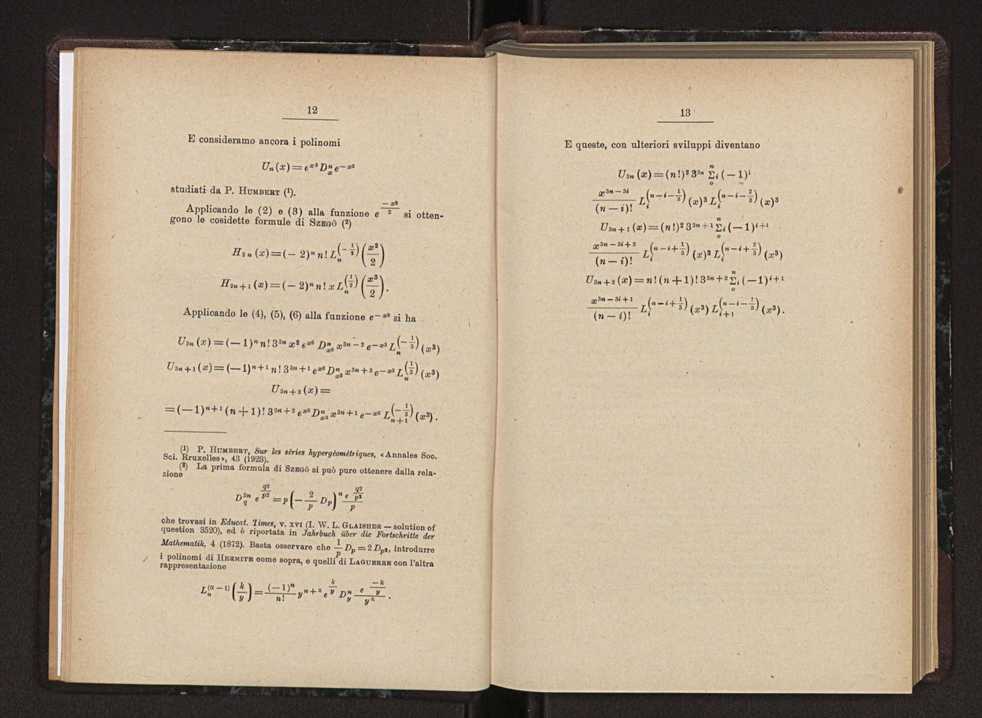 12
E consideramo ancora i polinomi
Uₙ(x) = e^{x³} D_x^n e^{−x³}
studiati da P. HUMBERT (¹).
Applicando le (2) e (3) alla funzione e^{−x²/2} si otten-
gono le cosidette formule di SZEGÖ (²)
H_{2n}(x) = (−2)^n n! L_n^{(−1/2)} (x²/2)
H_{2n+1}(x) = (−2)^n n! x L_n^{(1/2)} (x²/2).
Applicando le (4), (5), (6) alla funzione e^{−x³} si ha
U_{3n}(x) = (−1)^n n! 3^{2n} x² e^{x³} D_{x³}^n x^{3n−2} e^{−x³} L_n^{(−1/3)} (x³)
U_{3n+1}(x) = (−1)^{n+1} n! 3^{2n+1} e^{x³} D_{x³}^n x^{3n+2} e^{−x³} L_n^{(1/3)} (x³)
U_{3n+2}(x) =
= (−1)^{n+1} (n+1)! 3^{2n+2} e^{x³} D_{x³}^n x^{3n+1} e^{−x³} L_{n+1}^{(−1/3)} (x³).
(¹) P. HUMBERT, Sur les séries hypergéométriques, «Annales Soc.
Sci. Bruxelles», 43 (1923).
(²) La prima formula di SZEGÖ si può pure ottenere dalla rela-
zione
D_q^{2n} e^{q²/p²} = p (−2/p D_p)^n e^{q²/p²}/p
che trovasi in Educat. Times, v. XVI (I. W. L. GLAISHER — solution of
question 3520), ed è riportata in Jahrbuch über die Fortschritte der
Mathematik, 4 (1872). Basta osservare che 1/p D_p = 2 D_{p²}, introdurre
i polinomi di HERMITE come sopra, e quelli di LAGUERRE con l'altra
rappresentazione
L_n^{(α−1)} (k/y) = (−1)^n/n! y^{n+α} e^{k/y} D_y^n e^{−k/y}/y^α.
13
E queste, con ulteriori sviluppi diventano
U_{3n}(x) = (n!)² 3^{3n} Σ_i (−1)^i
x^{3n−3i}/(n−i)! L_i^{(n−i−1/3)} (x)³ L_i^{(n−i−2/3)} (x)³
U_{3n+1}(x) = (n!)² 3^{3n+1} Σ_i (−1)^{i+1}
x^{3n−3i+2}/(n−i)! L_i^{(n−i+1/3)} (x)³ L_i^{(n−i+2/3)} (x³)
U_{3n+2}(x) = n! (n+1)! 3^{3n+2} Σ_i (−1)^{i+1}
x^{3n−3i+1}/(n−i)! L_i^{(n−i+1/3)} (x³) L_{i+1}^{(n−i−1/3)} (x³).